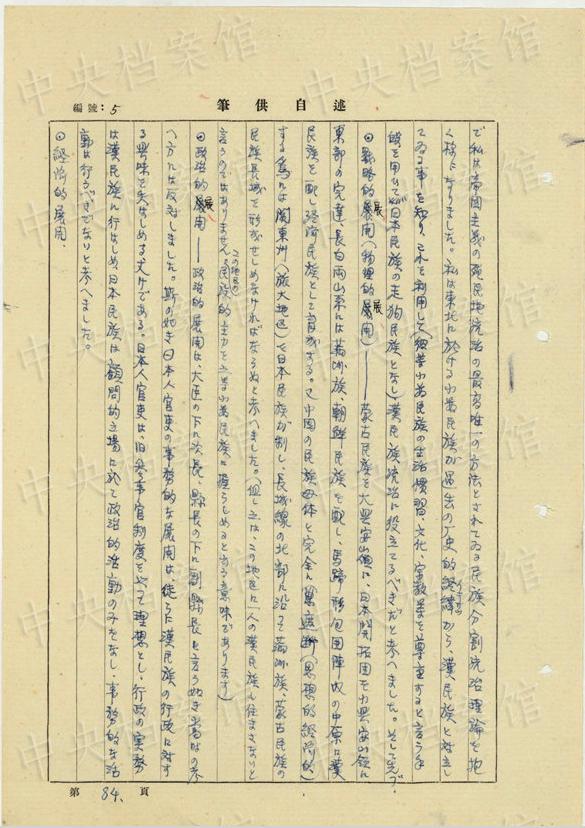 述自供筆
編號：5
で私は帝国主義の殖民地統治の最高唯一の方法とされてゐる民族分割統治理論を抱
く様になりました。私は東北に於ける小数民族が過去の歴史的経緯から、漢民族と対立し
てゐる事を知り、これを利用して（各少数民族の生活慣習、文化、宗教等を尊重すると言う手
段を用ひて）日本民族の走狗民族となし漢民族統治に役立てるべきだと考へました。そして先づ、
⊙戦略的展開（物理的展開）——蒙古民族を大興安嶺に、日本開拓団を小興安嶺に
東部の完達、長白両山系には満洲族、朝鮮民族を配し、馬蹄形包囲陣地の中原に漢
民族を配し経済民族として育成する。又中国の民族母体と完全に遮断（思想的経済的）
する為には関東州（旅大地区）を日本民族が制し、長城線の北部に沿って満洲族、蒙古民族の
民族長城を形成せしめなければならぬと考へました。（但し之は、この地区に一人の漢民族も住まさないと
言うのではありません。この地区の民族的主力を之等少数民族に握らしめるとする意味であります）
⊙政治的展開——政治的展開は、大臣の下に次長、県長の下に副県長と言うぬき当時の考
へ方には反対しました。斯の如き日本人官吏の事務的な展開は、徒らに漢民族の行政に対す
る興味を失はしめる丈けである。日本人官吏は、旧参事官制度を以って理想とし、行政の実務
は漢民族に行はしめ、日本民族は顧問的立場に於て政治的活動のみをなし、事務的な活
動は行うべきでないと考へました。
⊙経済的展開。
第84.頁
中央档案馆